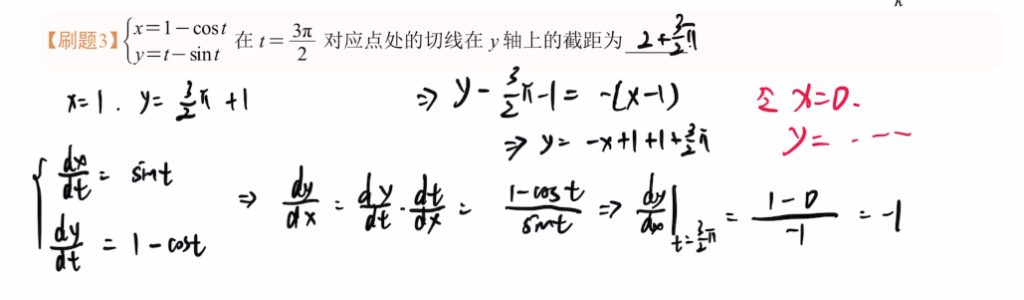 【刷题3】{x=1-cost y=t-sint 在 t=3π/2 对应点处的切线在 y 轴上的截距为 2+3/2π
x=1. y=3/2π+1 ⇒ y-3/2π-1=-(x-1) 令 x=0.
⇒ y=-x+1+1+3/2π y=.---
{dx/dt=sint dy/dt=1-cost ⇒ dy/dx=dy/dt·dt/dx=(1-cost)/sint ⇒ dy/dx|t=3/2π=(1-0)/-1=-1